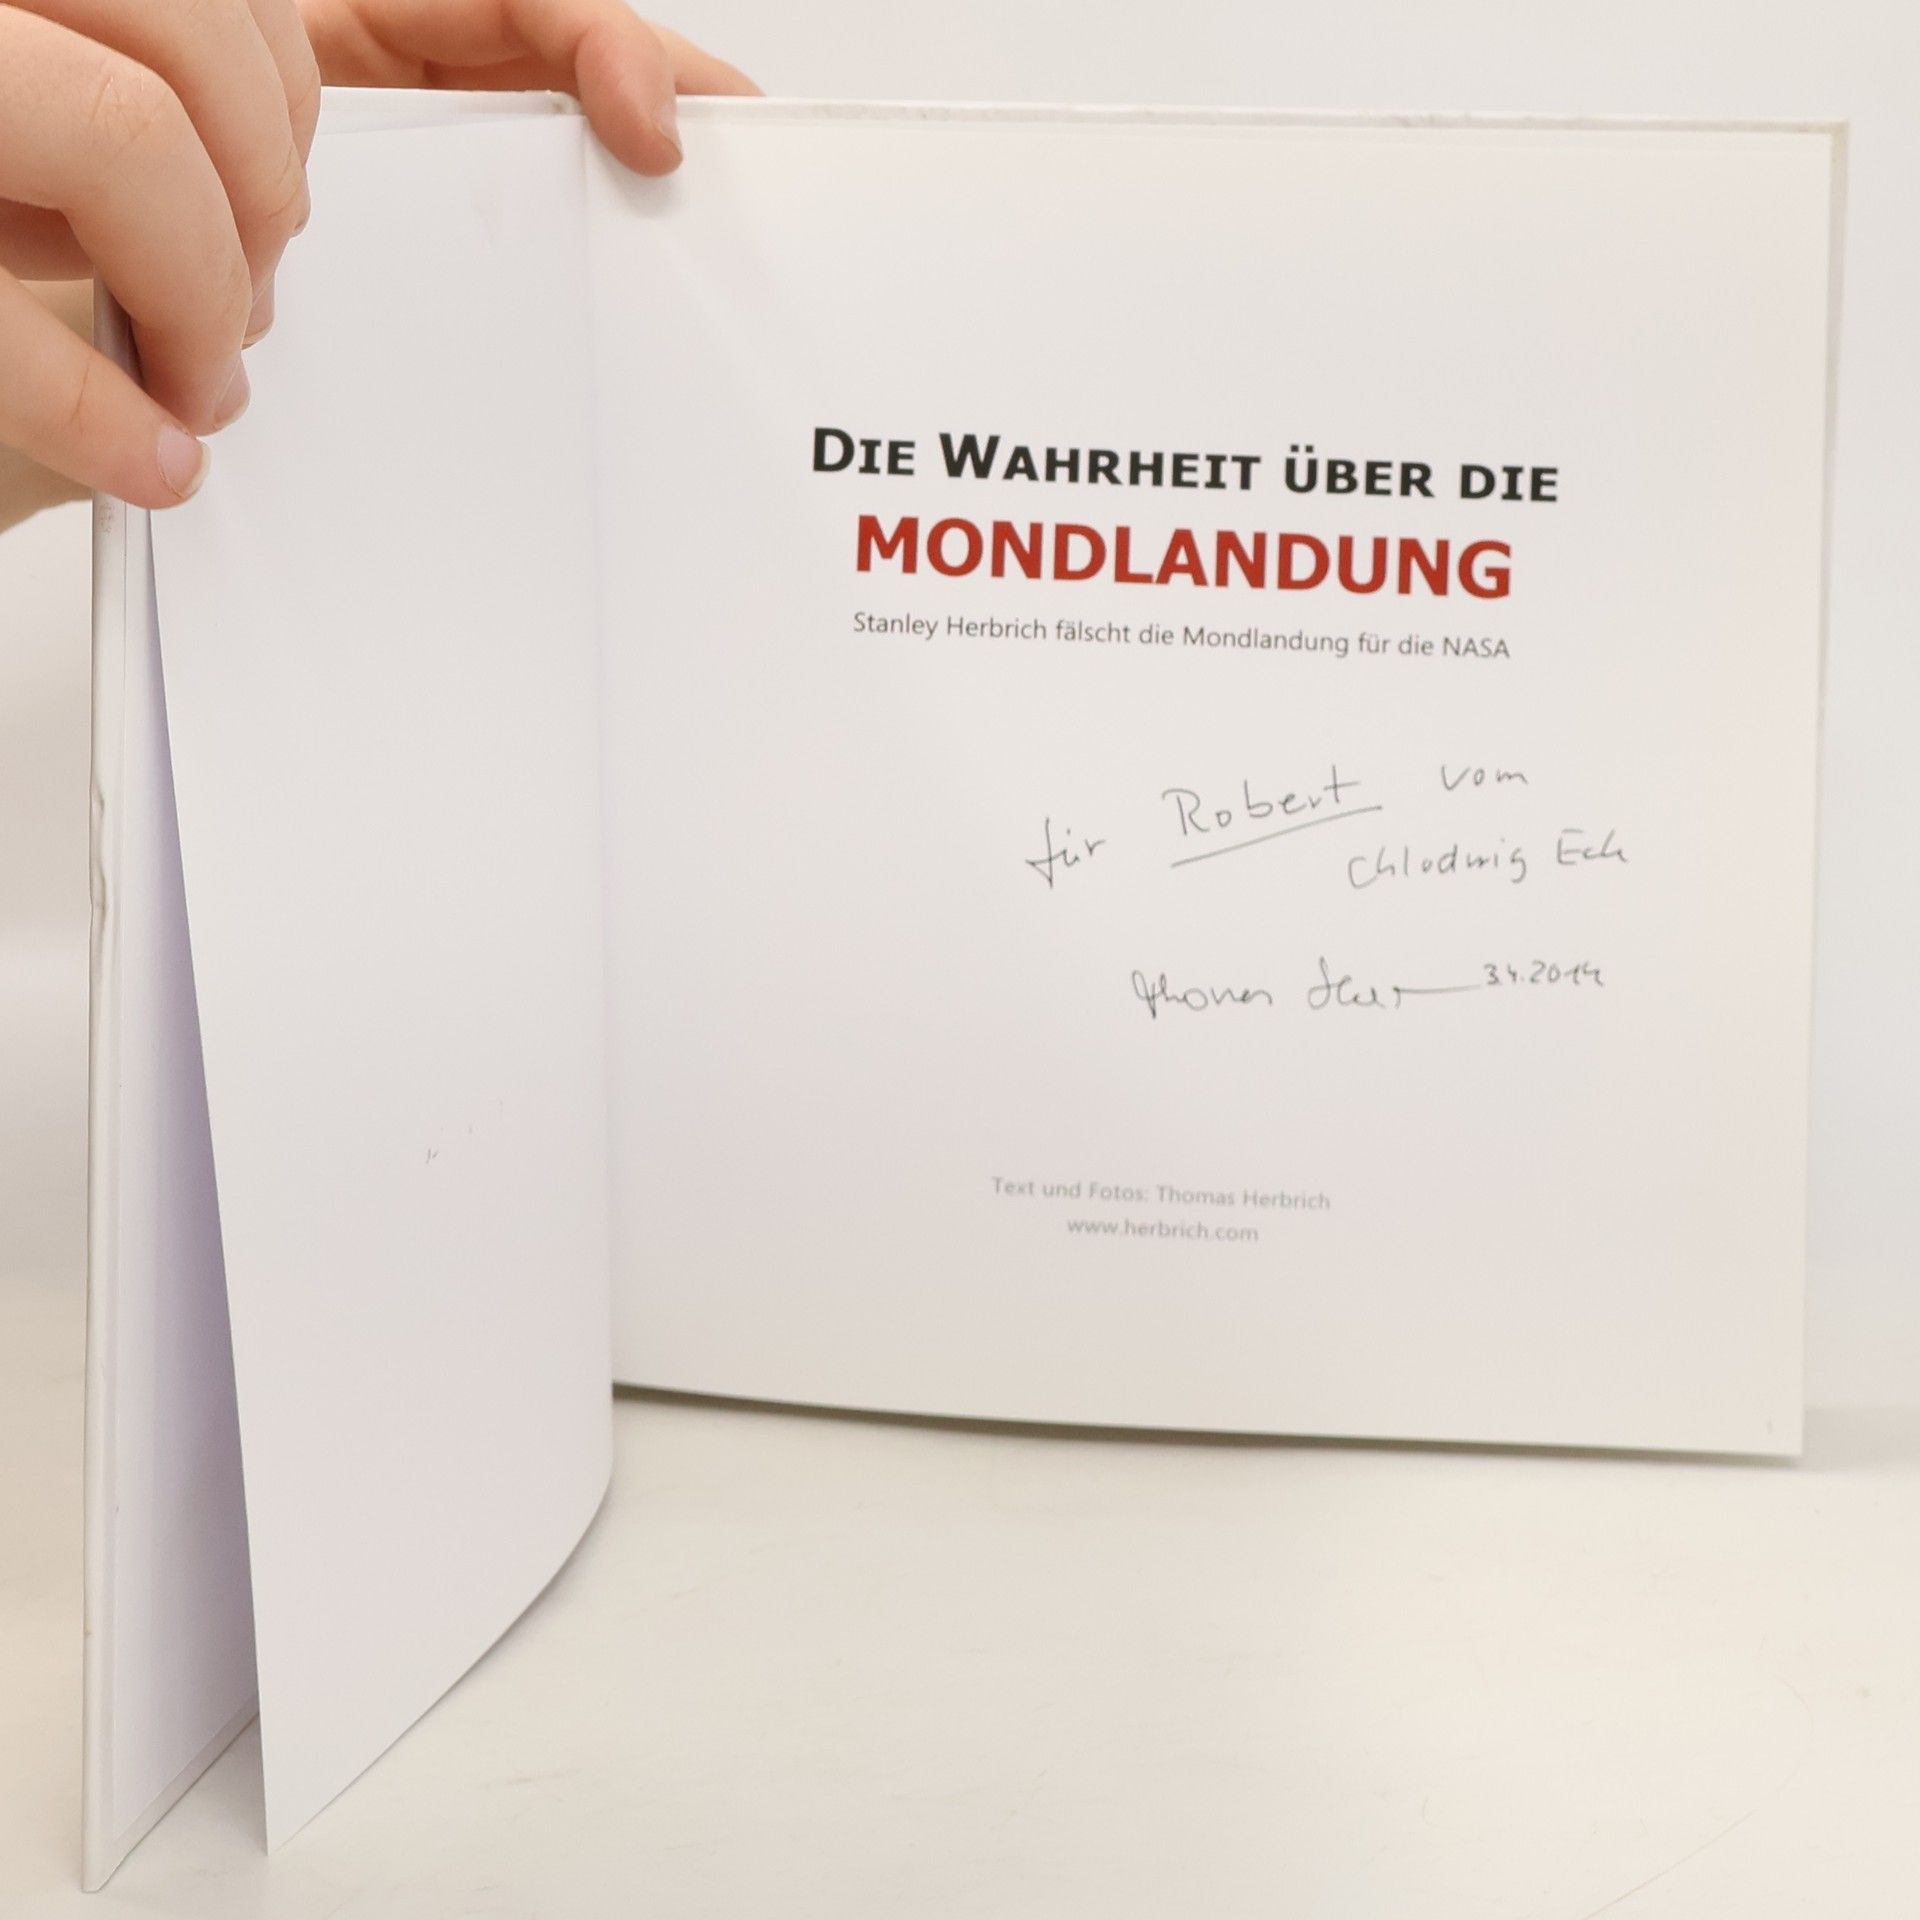 DIE WAHRHEIT ÜBER DIE
MONDLANDUNG
Stanley Herbrich fälscht die Mondlandung für die NASA
für Robert vom
Chlodwig Eck
Thomas 3.4.2014
Text und Fotos: Thomas Herbrich
www.herbrich.com
1